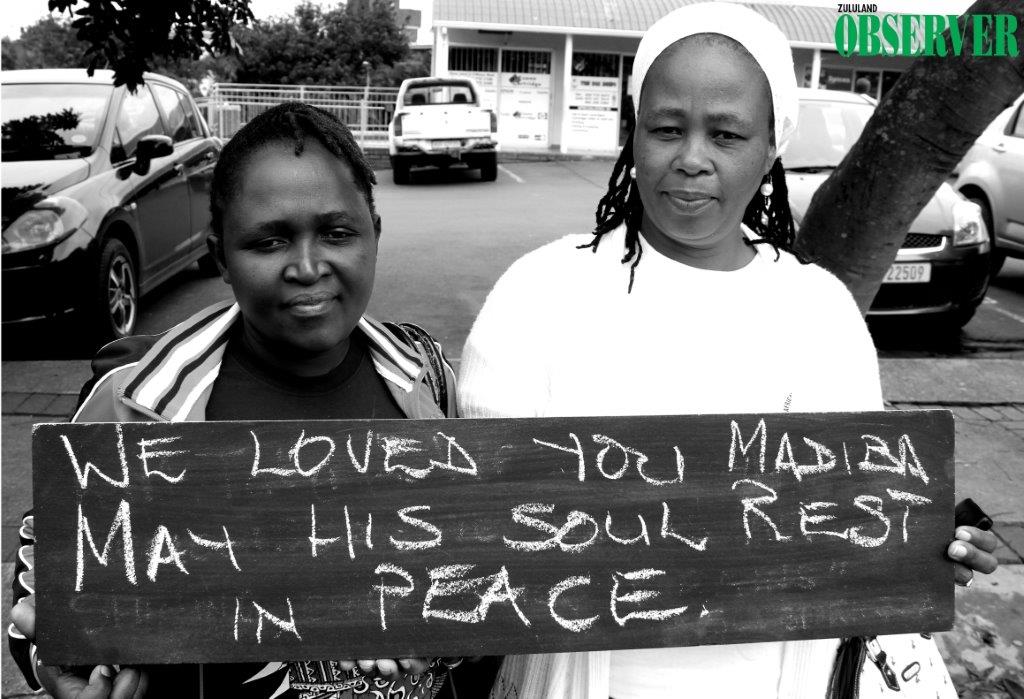 ZULULAND
OBSERVER
22509
WE LOVED YOU MADIBA
MAY HIS SOUL REST
IN PEACE.